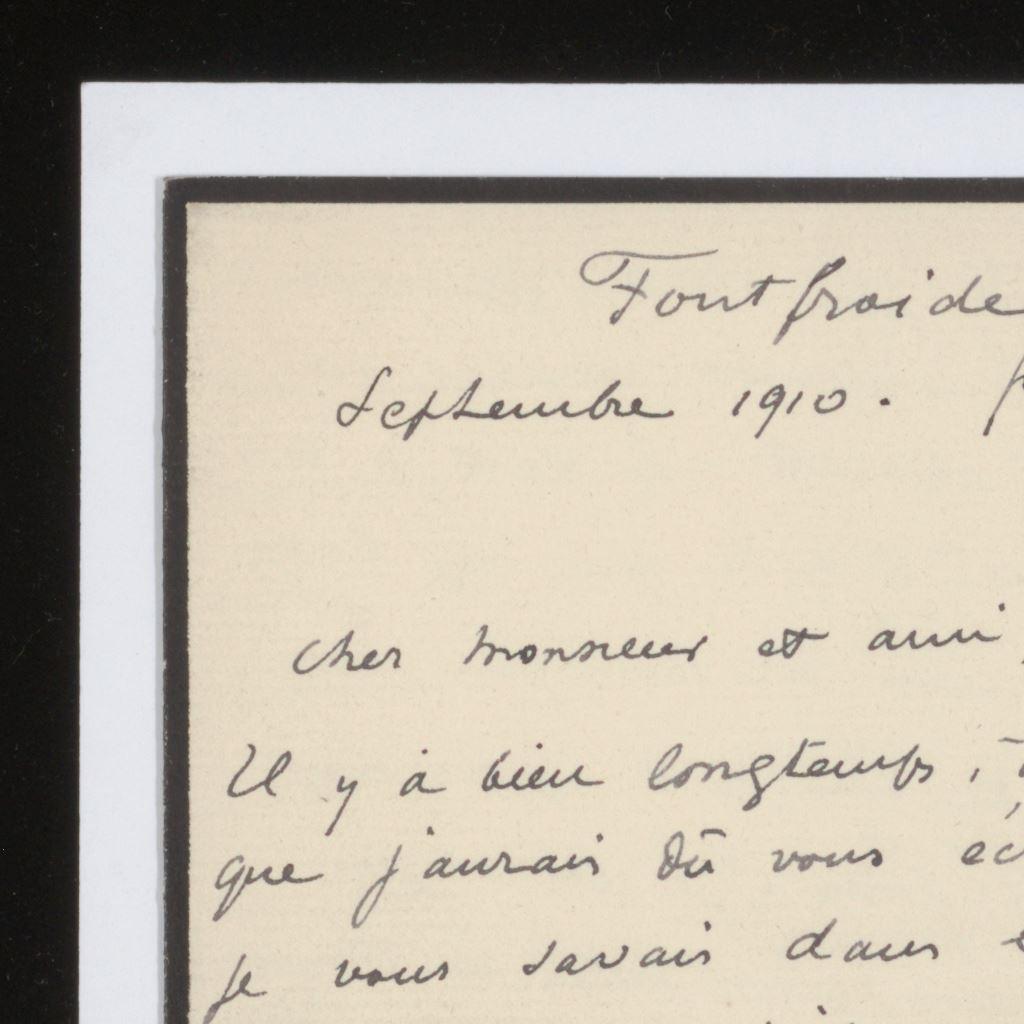 Fontfroide
Septembre 1910.
Cher monsieur et ami,
Il y à bien longtemps,
que j'aurais dû vous
je vous savais dans